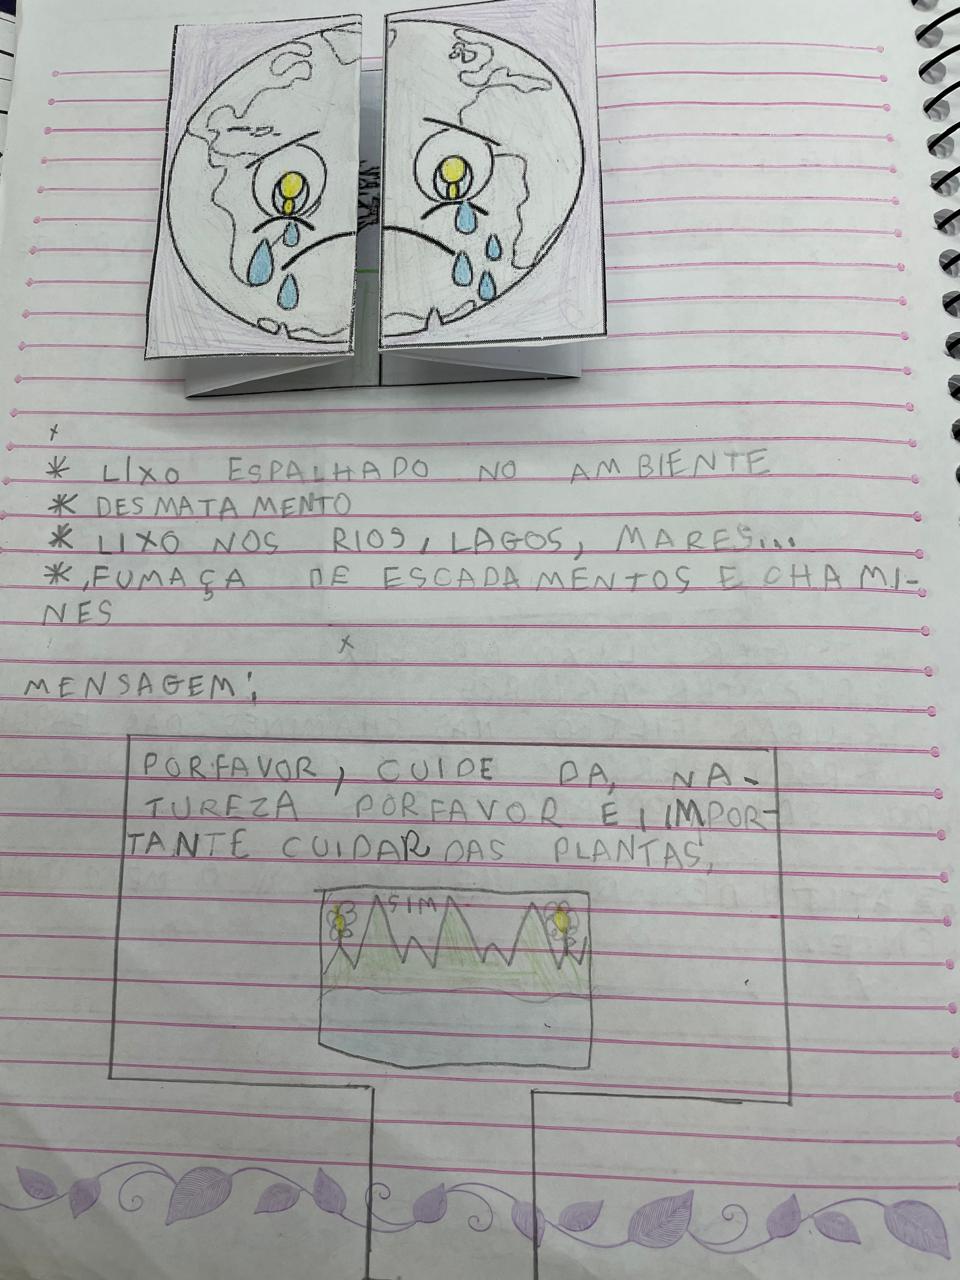 * LIXO ESPALHADO NO AMBIENTE
* DESMATAMENTO
* LIXO NOS RIOS, LAGOS, MARES...
* FUMAÇA DE ESCADAMENTOS E CHAMI-
NES
MENSAGEM:
PORFAVOR, CUIDE DA, NA-
TUREZA PORFAVOR E IMPOR-
TANTE CUIDAR DAS PLANTAS,
SIM